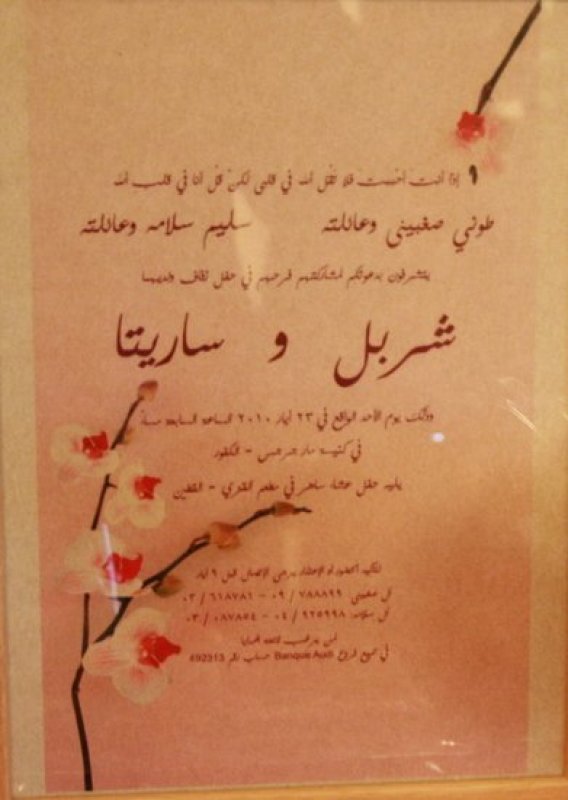 إذا أنت أحببت فلا تقل الله في قلبي لكن قل أنا في قلب الله
طوني صغبيني وعائلته سليم سلامه وعائلته
يتشرفون بدعوتكم لمشاركتهم فرحهم في حفل زفاف ولديهما
شربل و ساريتا
وذلك يوم الأحد الواقع في ٢٣ أيار ٢٠١٠ الساعة السابعة مساءً
في كنيسة مار جرجس -
يليه حفل عشاء ساهر في مطعم -
لتأكيد الحضور أو الإعتذار يرجى الإتصال قبل ٩ أيار
آل صغبيني ٧٨٨٨٩٩ / ٠٩ - ٦١٨٧٨١ / ٠٣
آل سلامه: ٩٢٥٩٩٨ / ٠٤ - ٠٨٧٨٥٤ / ٠٣
لمن يرغب لائحة الهدايا
في جميع فروع Banque Audi حساب رقم 692313